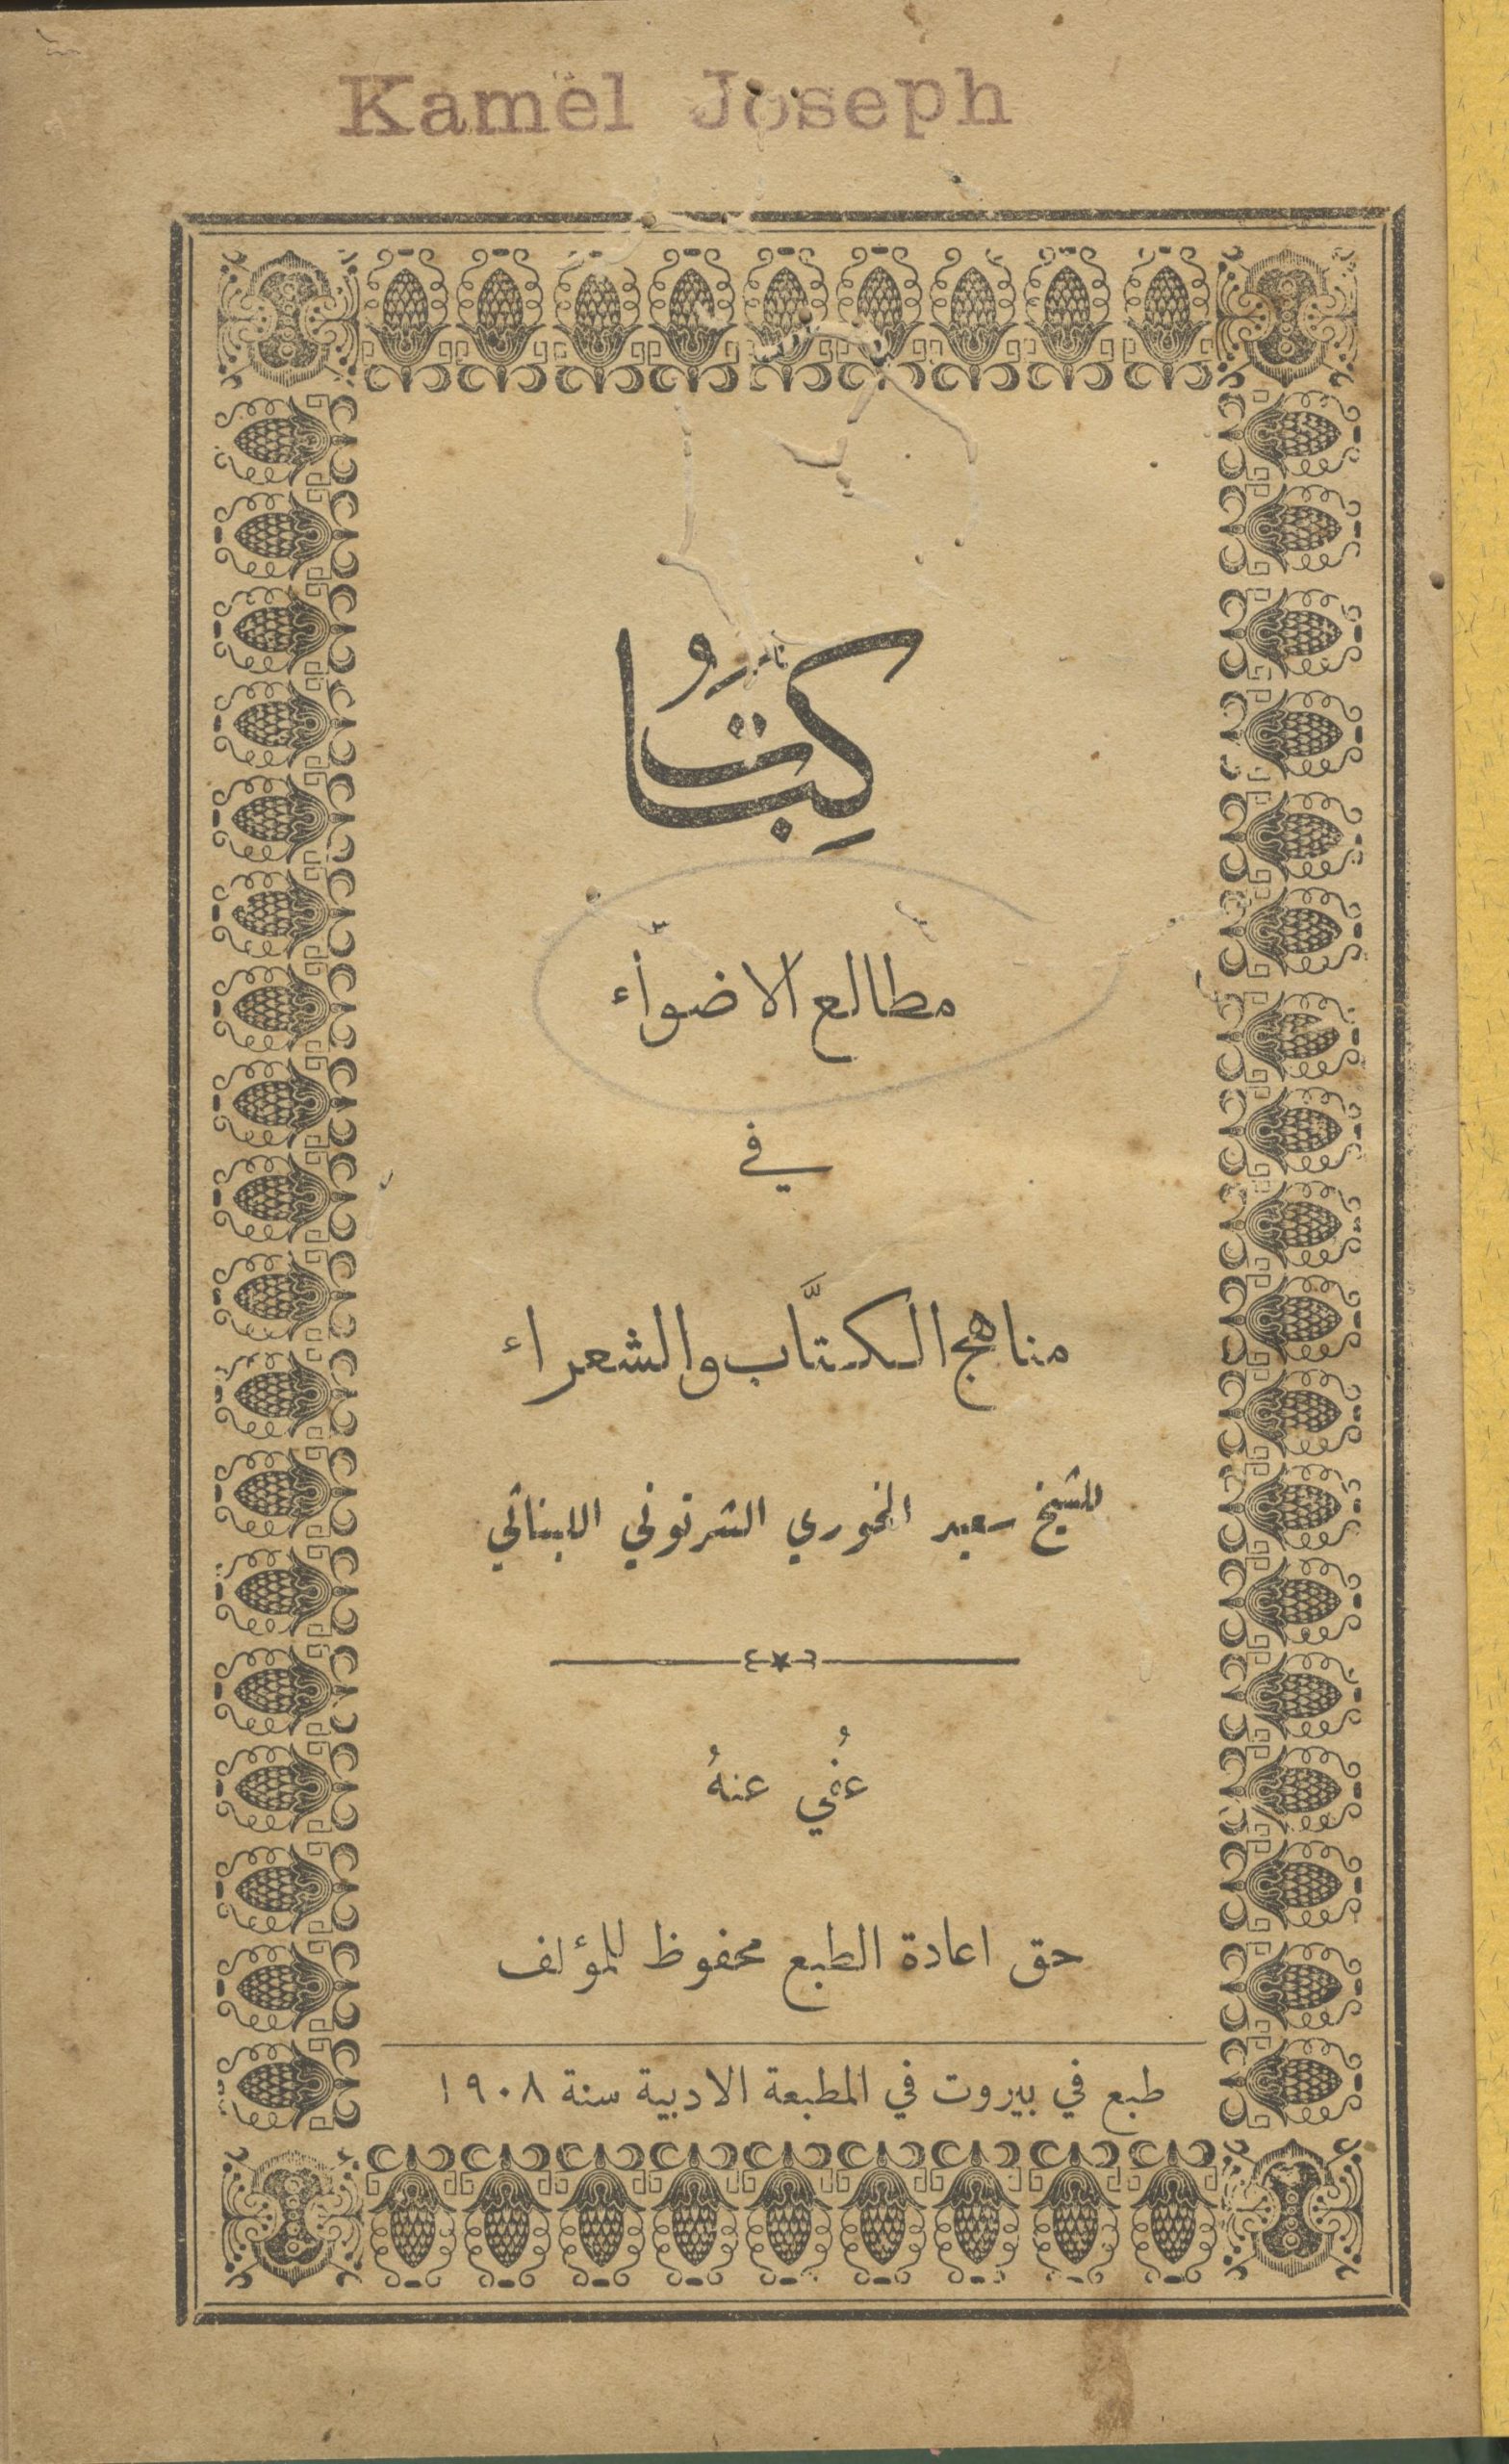 Kamel Joseph
كِتَابُ
مطالع الاضواء
في
مناهج الكتَّاب والشعراء
للشيخ سعيد الخوري الشرتوني اللبناني
عُفي عنهُ
حق اعادة الطبع محفوظ للمؤلف
طبع في بيروت في المطبعة الادبية سنة ١٩٠٨